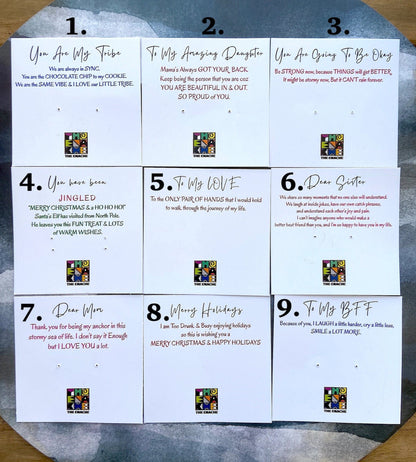 1.
You Are My Tribe
We are always in SYNC.
You are the CHOCOLATE CHIP to my COOKIE.
We are the SAME VIBE & I LOVE our LITTLE TRIBE.
THE KRACHE
2.
To My Amazing Daughter
Mama's Always GOT YOUR BACK.
Keep being the person that you are coz
YOU ARE BEAUTIFUL IN & OUT.
SO PROUD of YOU.
THE KRACHE
3.
You Are Going To Be Okay
Be STRONG now, because THINGS will get BETTER,
It might be stormy now, But it CAN'T rain forever.
THE KRACHE
4.
You have been
JINGLED
"MERRY CHRISTMAS & a HO HO HO"
Santa's Elf has visited from North Pole.
He leaves you this FUN TREAT & LOTS
of WARM WISHES.
THE KRACHE
5.
To My LOVE
To the ONLY PAIR OF HANDS that I would hold
to walk, through the journey of my life.
THE KRACHE
6.
Dear Sister
We share so many moments that no one else will understand.
We laugh at inside jokes, have our own catch phrases,
and understand each other's joy and pain.
I can't imagine anyone who would make a
better best friend than you, and I'm so happy to have you in my life.
THE KRACHE
7.
Dear Mom
Thank you for being my anchor in this
stormy sea of life. I don't say it Enough
but I LOVE YOU a lot.
THE KRACHE
8.
Merry Holidays
I am Too Drunk & Busy enjoying holidays
so this is wishing you a
MERRY CHRISTMAS & HAPPY HOLIDAYS
THE KRACHE
9.
To My BFF
Because of you, I LAUGH a little harder, cry a little less,
SMILE a LOT MORE.
THE KRACHE